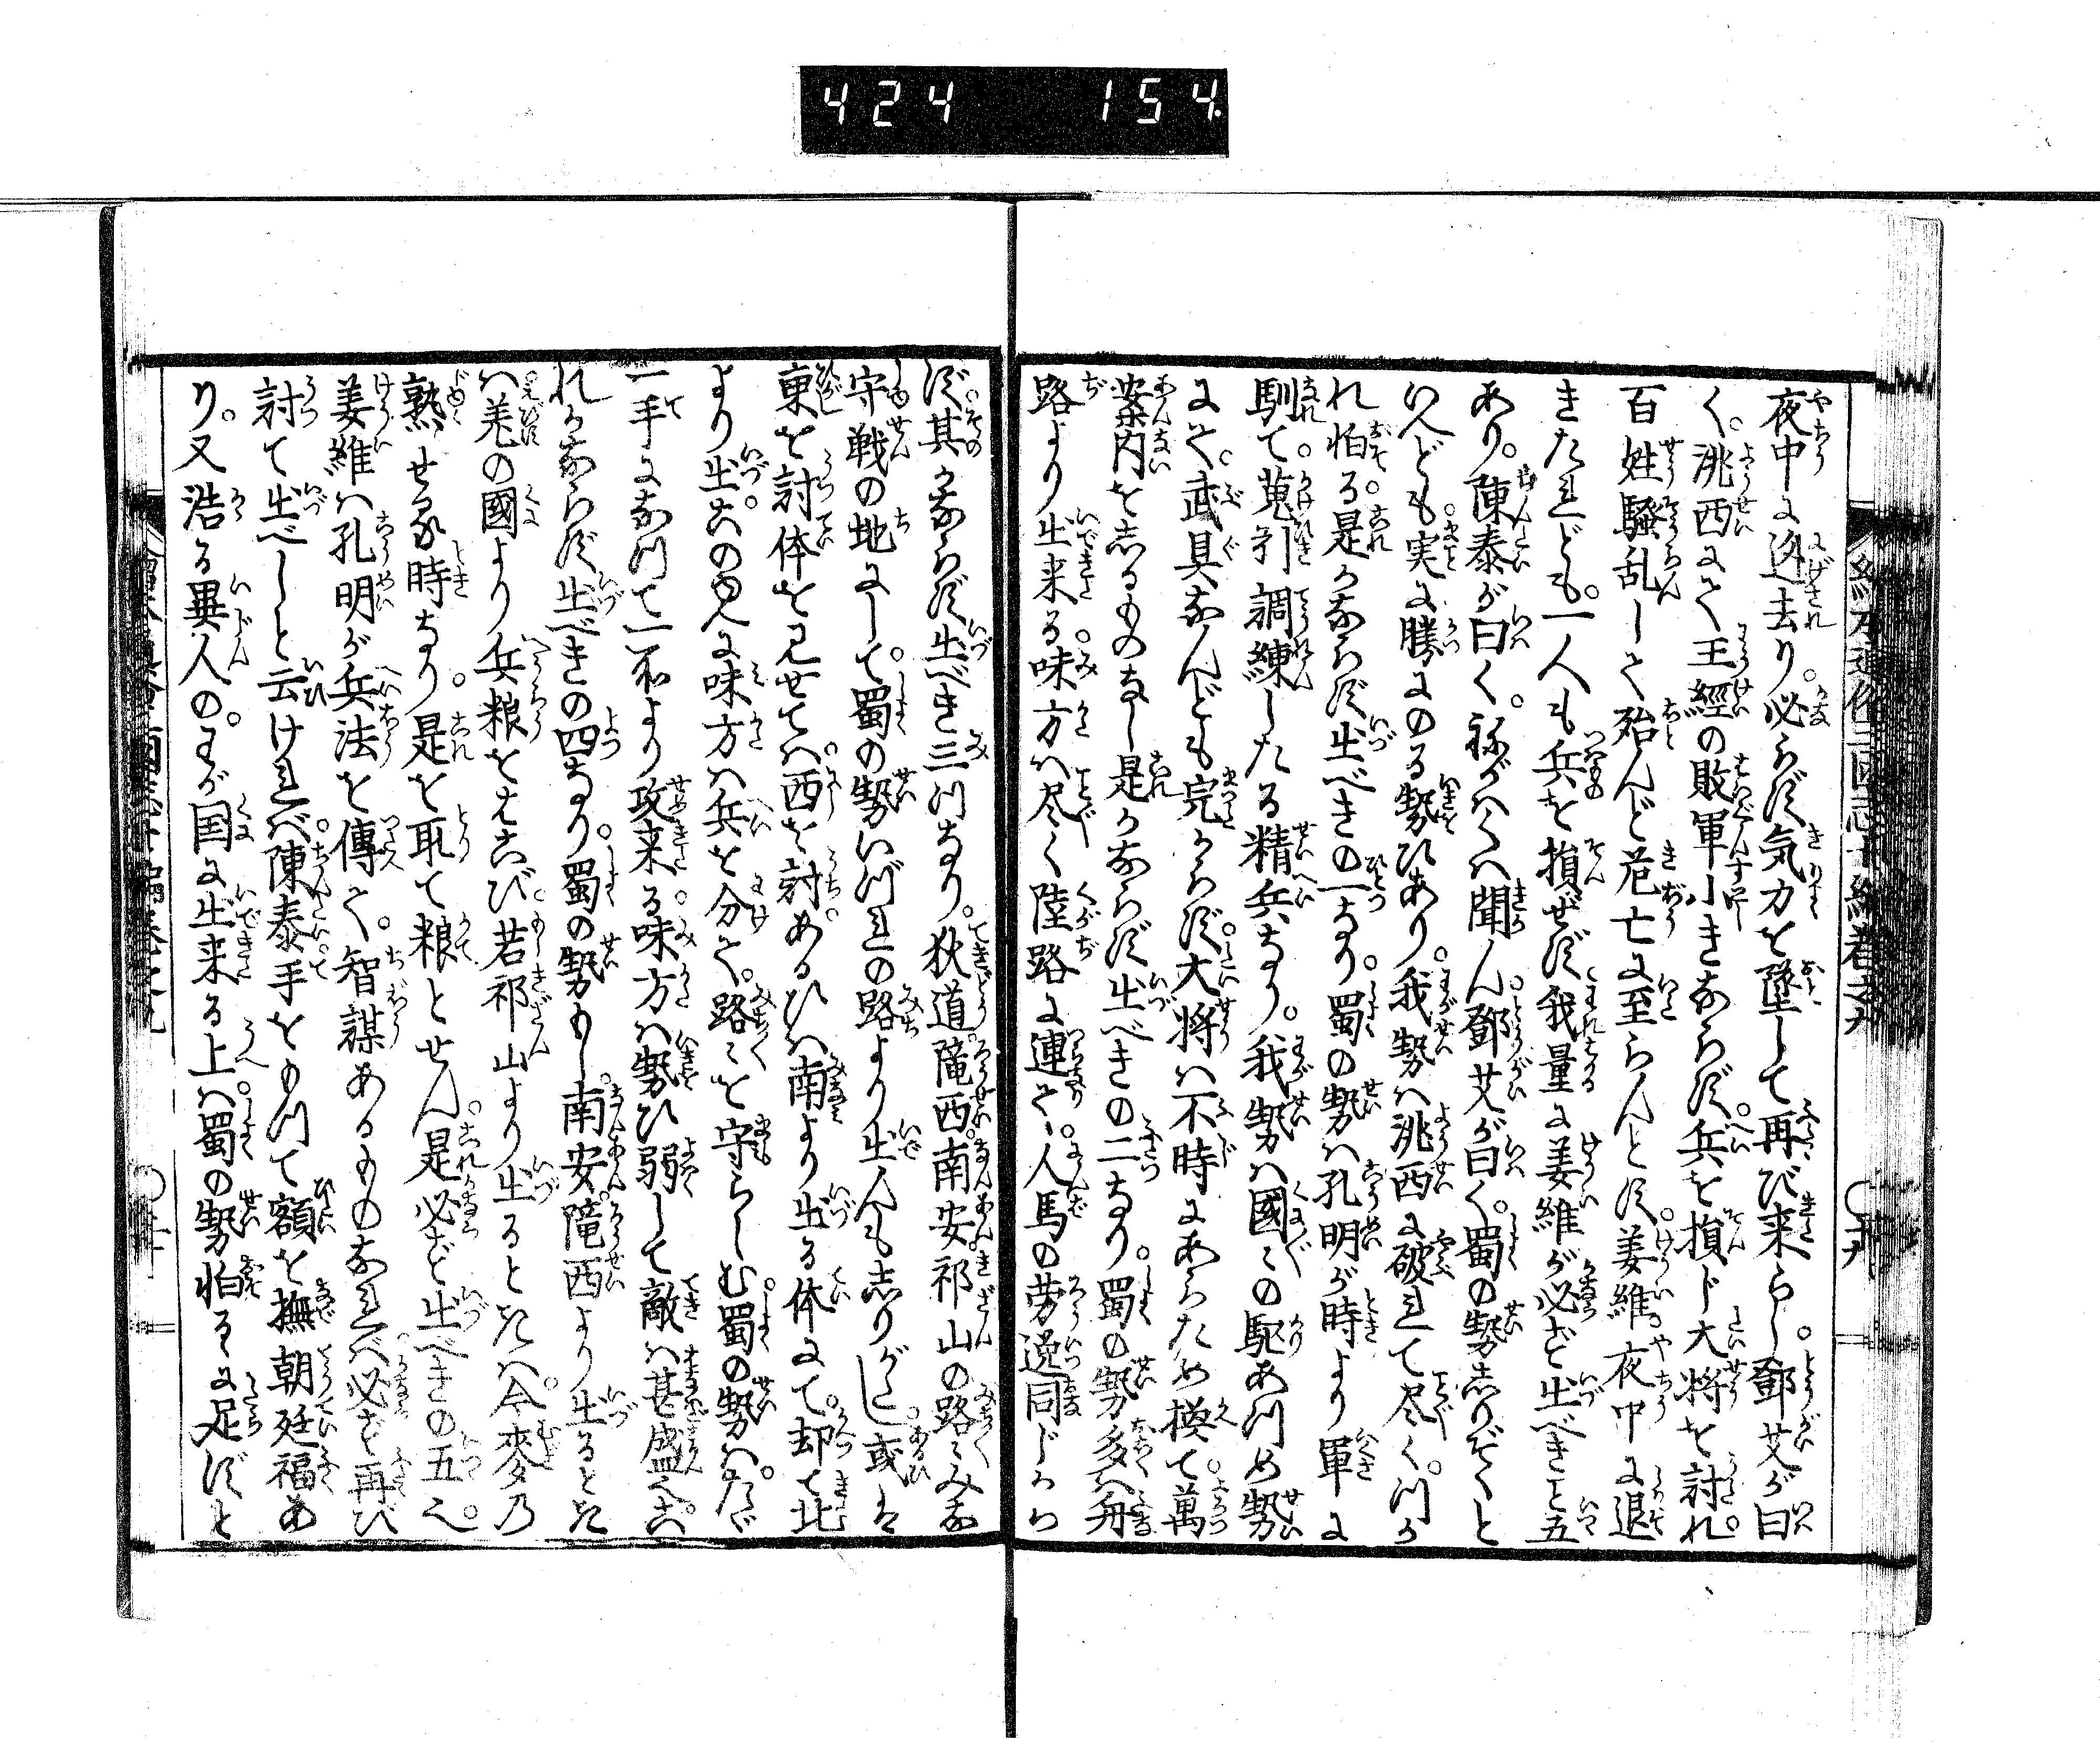 424 154.
夜中に迯去り。必らず気力を墜して再び来らし。鄧艾が曰
く。洮西にて王經の敗軍小きならず。兵を損じ大将を討れ
百姓騒乱して殆んど危亡に至らんとす。姜維。夜中に退
きたれども。一人も兵を損ぜず我量に姜維が必ず出べきこと五
あり。陳泰が曰く。祢がハくハ聞ん。鄧艾が曰く。蜀の勢志りぞくと
いへども。実に勝にのる勢ひあり。我勢ハ洮西に破れて尽く。つか
れ怕る。是かならず出べきの一なり。蜀の勢ハ孔明が時より軍に
馴て。蒐引調練したる精兵なり。我勢ハ國〻の駈あつめ勢
にて。武具なんども完からず。大将ハ不時にあらため換て。萬
案内を志るものなし是かならず出べきの二なり。蜀の勢多くハ舟
路より出来る。味方ハ尽く陸路に連て。人馬の労逸同じから
ず。其かならず出べき三つなり。狄道。隴西。南安。祁山の路〻みな
守戦の地にして。蜀の勢いづれの路より出んも志りがたし。或は
東を討体を見せてハ。西を討。あるひハ南より出る体にて。却て北
より出。このゆへに味方ハ兵を分て。路〻を守らしむ。蜀の勢ハ。たゞ
一手になつて一所より攻来る。味方ハ勢ひ弱して敵ハ甚盛也。こ
れかならず出べきの四なり。蜀の勢もし。南安。隴西より出るとき
ハ羌の國より兵粮をはこび。若祁山より出るときハ。今麥の
熟せる時なり。是を取て粮とせん。是必ず出べきの五也。
姜維ハ孔明が兵法を傳て。智謀あるものなれバ。必ず再び
討て出べしと云けれバ。陳泰手をもつて額を撫朝廷福あ
り。又浩る異人の。わが国に出来る上ハ。蜀の勢怕るに足ずと